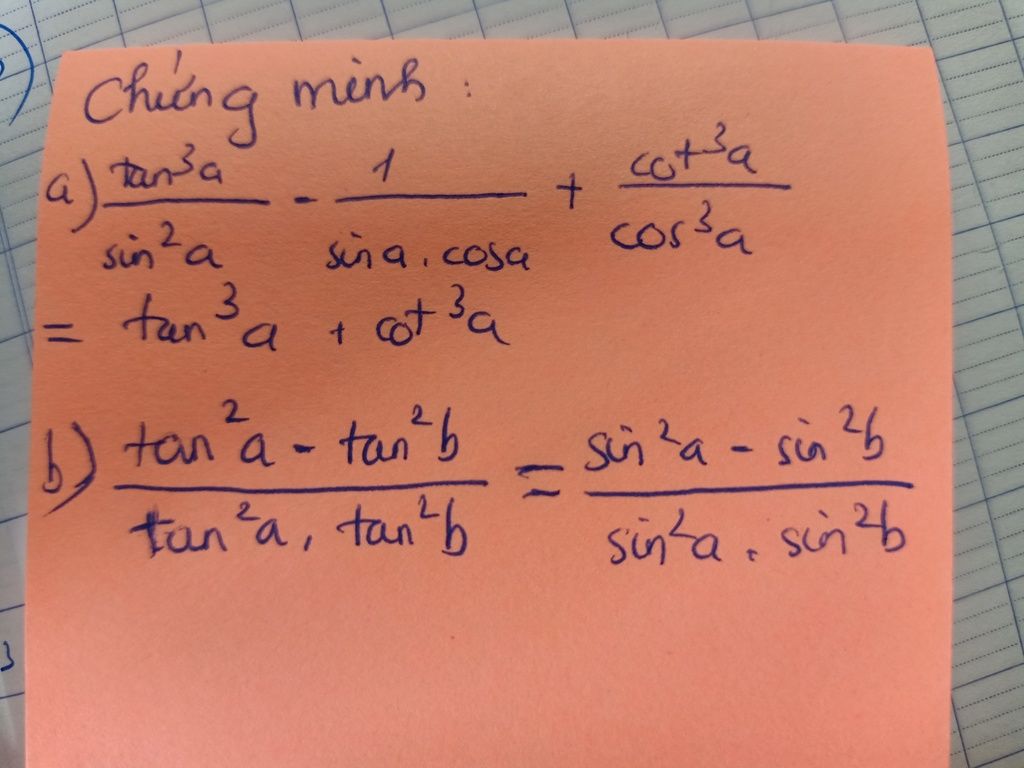 Chứng minh :
a) \frac{tan^3 a}{sin^2 a} - \frac{1}{sin a . cos a} + \frac{cot^3 a}{cos^3 a}
= tan^3 a + cot^3 a
b) \frac{tan^2 a - tan^2 b}{tan^2 a . tan^2 b} = \frac{sin^2 a - sin^2 b}{sin^2 a . sin^2 b}
3